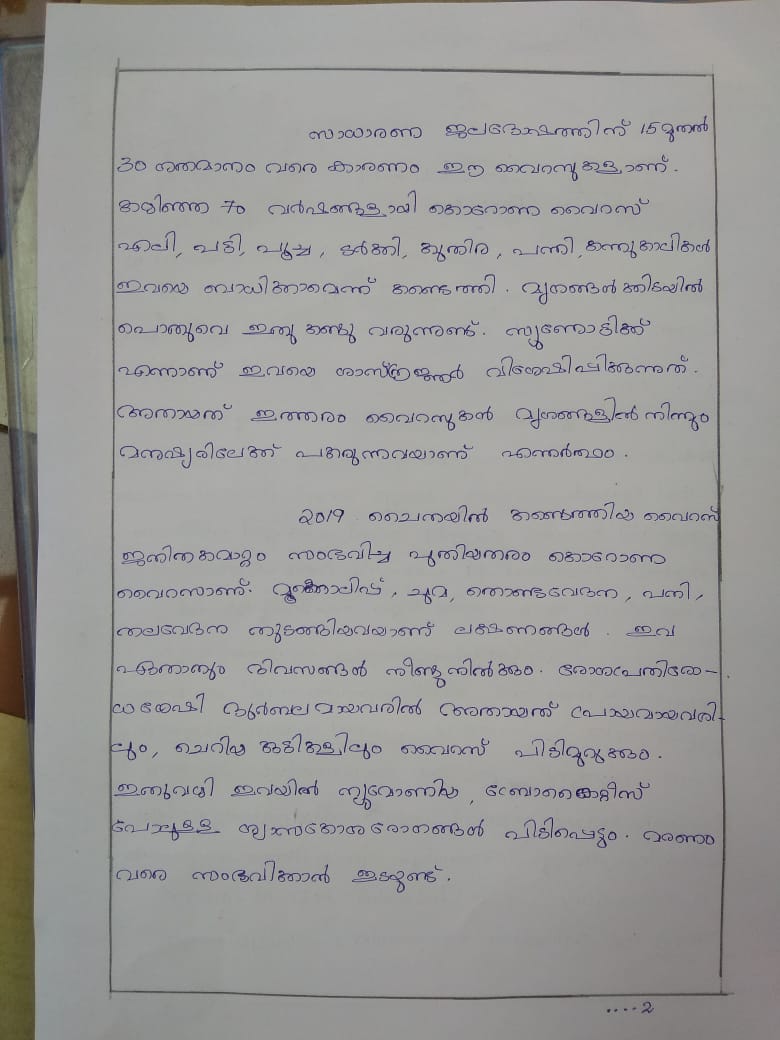 സാധാരണ ജലദോഷത്തിന് 15 മുതൽ
30 ശതമാനം വരെ കാരണം ഈ വൈറസുകളാണ്.
കഴിഞ്ഞ 70 വർഷങ്ങളായി കൊറോണ വൈറസ്
എലി, പട്ടി, പൂച്ച, ടർക്കി, കുതിര, പന്നി, കന്നുകാലികൾ
ഇവയെ ബാധിക്കാമെന്ന് കണ്ടെത്തി. മൃഗങ്ങൾക്കിടയിൽ
പൊതുവെ ഇതു കണ്ടു വരുന്നുണ്ട്. സൂണോട്ടിക്ക്
എന്നാണ് ഇവയെ ശാസ്ത്രജ്ഞർ വിശേഷിപ്പിക്കുന്നത്.
അതായത് ഇത്തരം വൈറസുകൾ മൃഗങ്ങളിൽ നിന്നും
മനുഷ്യരിലേക്ക് പകരുന്നവയാണ് എന്നർത്ഥം.
2019 ചൈനയിൽ കണ്ടെത്തിയ വൈറസ്
ജനിതകമാറ്റം സംഭവിച്ച പുതിയതരം കൊറോണ
വൈറസാണ്. മൂക്കൊലിപ്പ്, ചുമ, തൊണ്ടവേദന, പനി,
തലവേദന തുടങ്ങിയവയാണ് ലക്ഷണങ്ങൾ. ഇവ
ഏതാനും ദിവസങ്ങൾ നീണ്ടുനിൽക്കും. രോഗപ്രതിരോ-
ധശേഷി ദുർബലമായവരിൽ അതായത് പ്രായമായവരി-
ലും, ചെറിയ കുട്ടികളിലും വൈറസ് പിടിമുറുക്കും.
ഇതുവഴി ഇവയിൽ ന്യൂമോണിയ, ബ്രോങ്കൈറ്റിസ്
പോലുള്ള ശ്വാസകോശരോഗങ്ങൾ പിടിപ്പെടും. മരണം
വരെ സംഭവിക്കാൻ ഇടയുണ്ട്.
....2